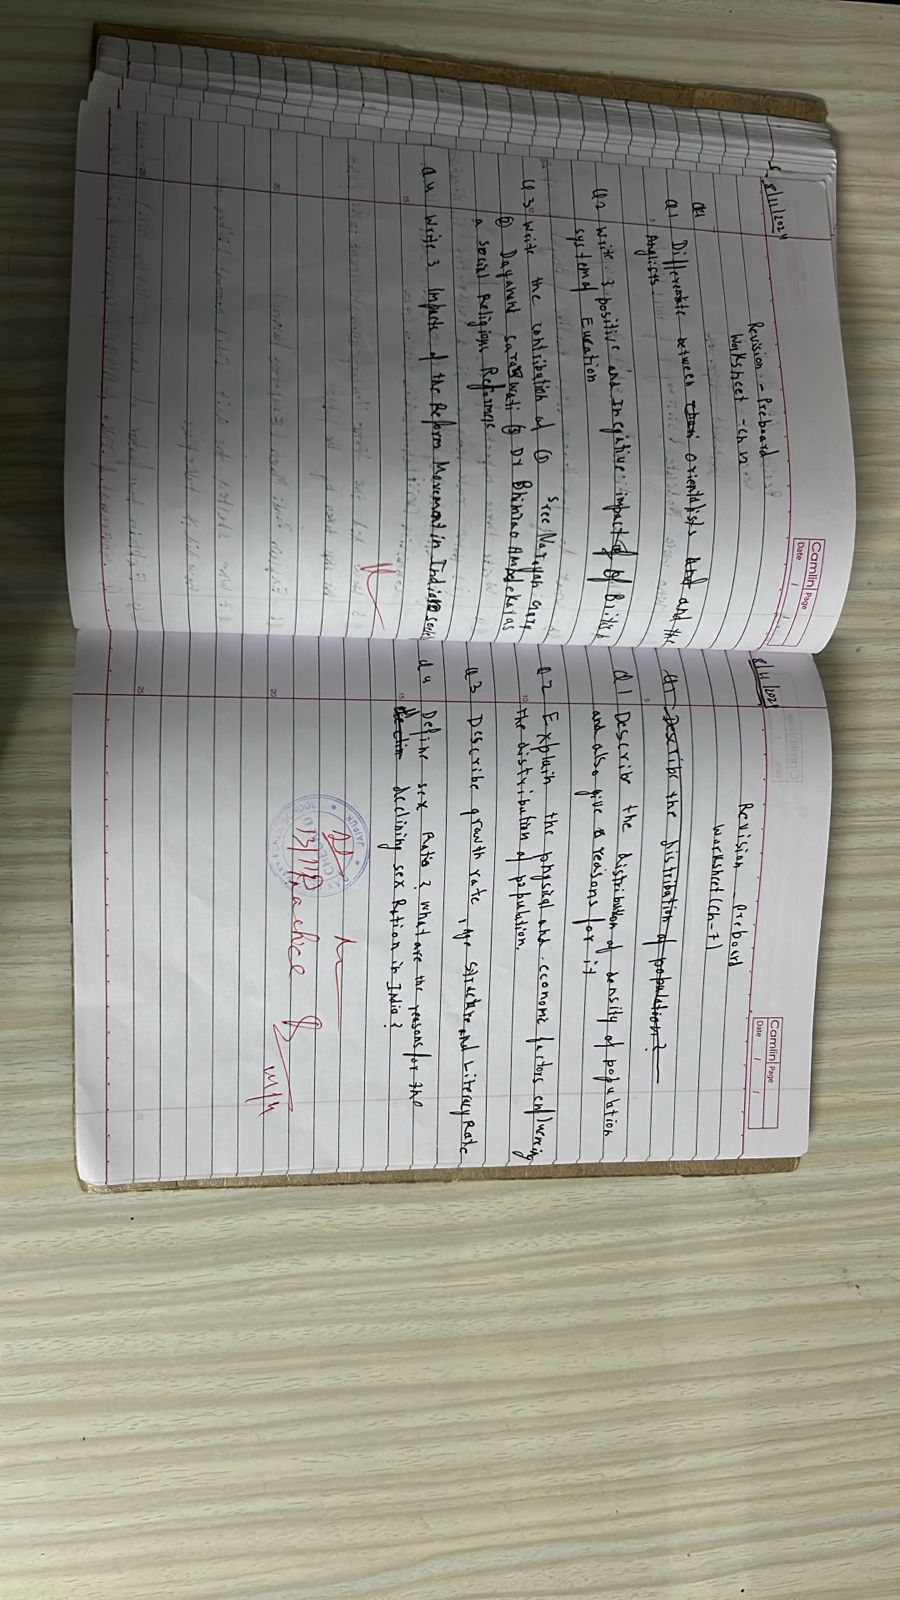 8/11/2024
Camlin Page
Date / /
Revision - Preboard
Worksheet - Ch 12
Q1 Differentiate between orientalists and the
Anglists
Q2 Write 3 positive and negitive impact of British
system of Eucation
Q3 Write the contribution of ①
② Dayanant ③ Dr Bhimrao Ampdekar as
a social Religious Reformers
Q4 Write 3 Impacts of the Reform Movement in Indian
Camlin Page
Date / /
Revision - Preboard
Worksheet (Ch-7)
Q1 Describe the distribution of population?
Q1 Describe the distribution of density of population
and also give reasons for it
Q2 Explain the physical and economic factors enfluencing
the distribution of population.
Q3 Describe growth rate, age structure and Literacy Rate
Q4 Define sex Ratio? what are the reasons for the
declining sex Ration in India?
JAIPUR